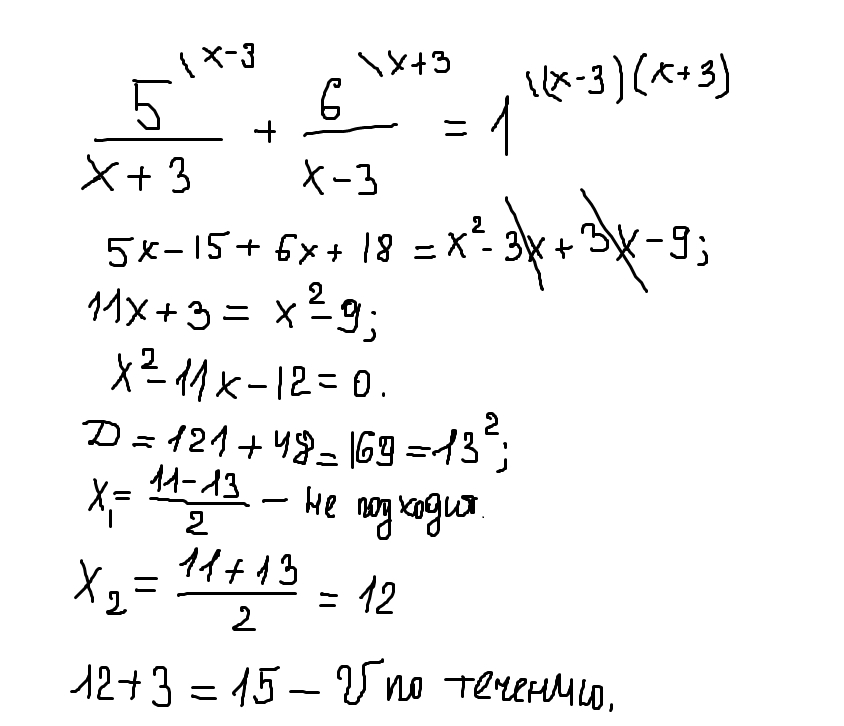 5^{\x-3}/(x+3) + 6^{\x+3}/(x-3) = 1^{\(x-3)(x+3)}
5x-15+6x+18 = x²-3x+3x-9;
11x+3 = x²-9;
x²-11x-12=0.
D=121+48=169=13²;
x₁=(11-13)/2 – не подходит.
x₂=(11+13)/2 = 12
12+3=15 – V по течению.